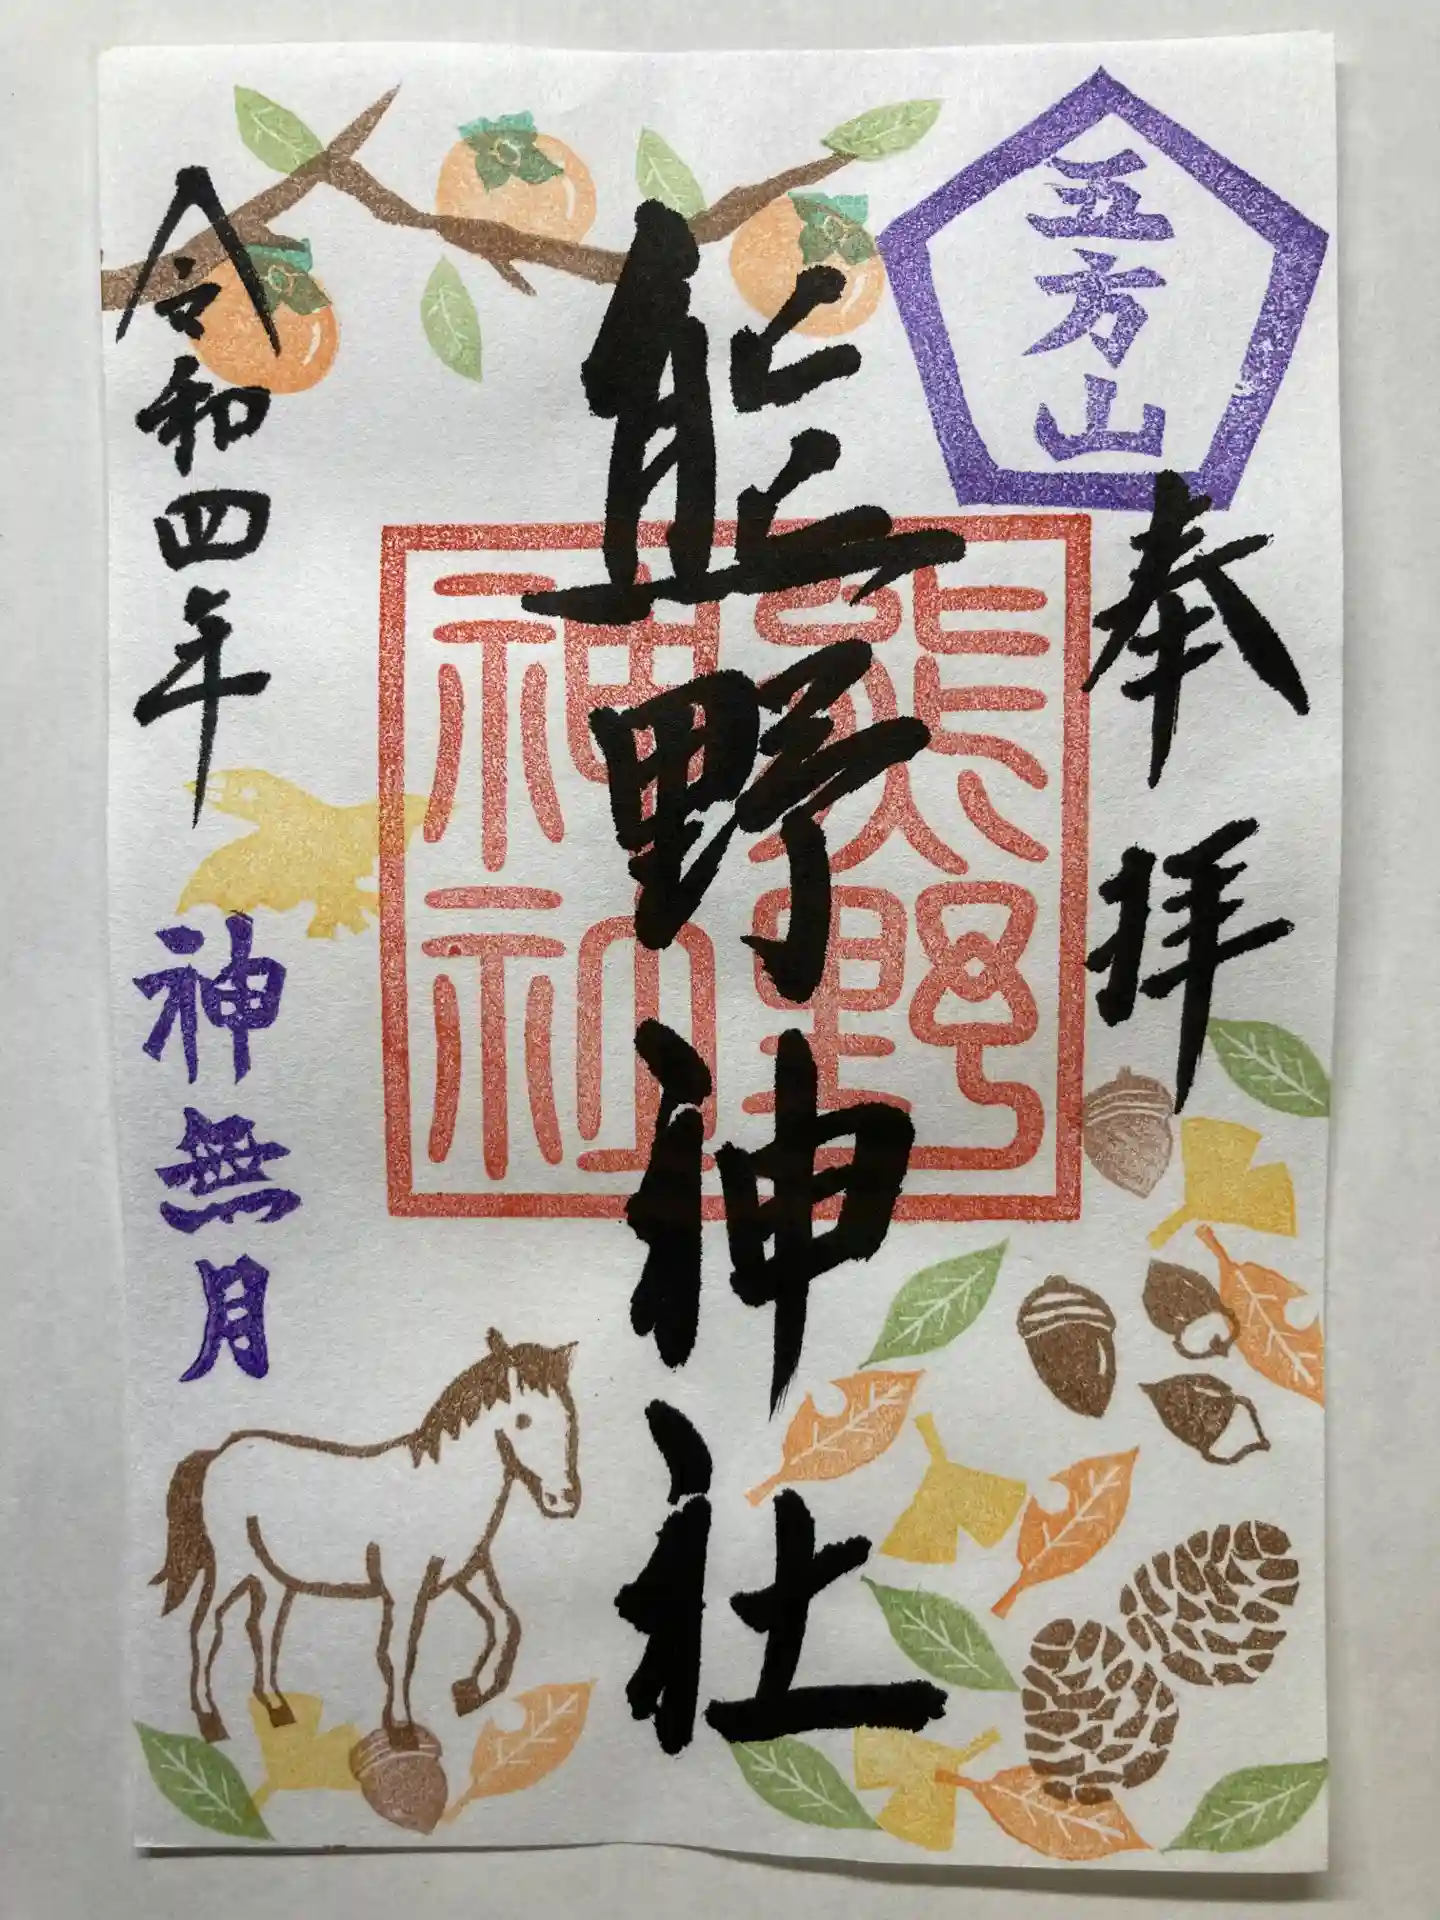 五方山
奉拝
熊野神社
熊野
神社
令和四年
神無月